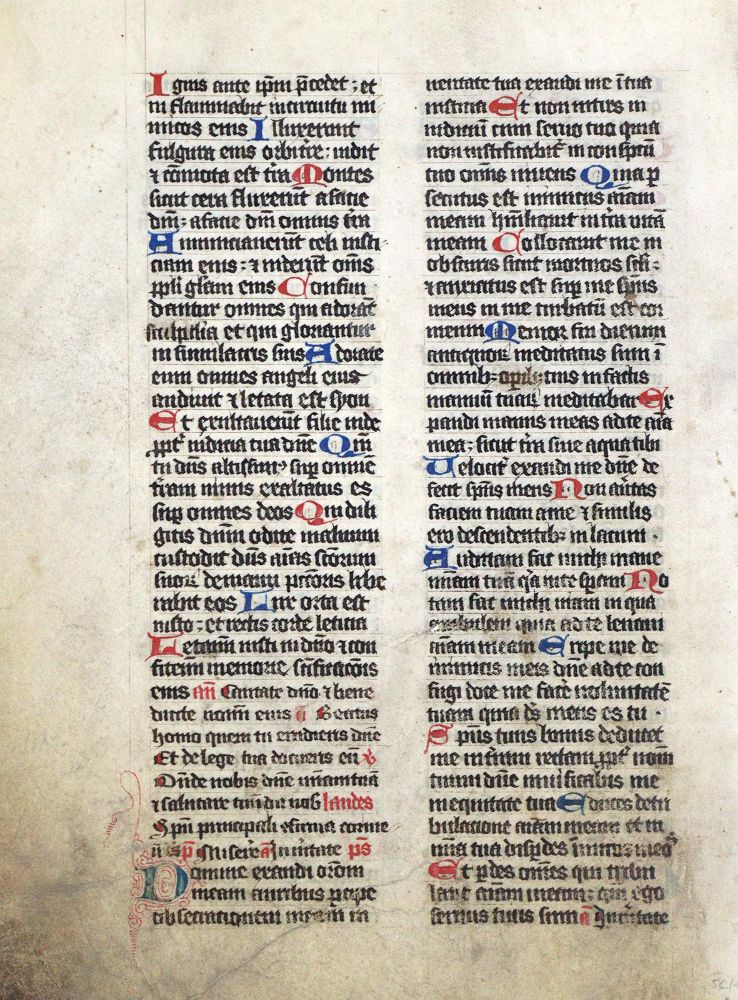 Ignis ante ip̄m p̄cedet ; et
in flammabit in circuitu ini
micos eius Illuxerunt
fulgura eius orbit̄re : uidit
⁊ cōmota est t̄ra Montes
sicut cera fluxerunt a facie
dm̄ : a facie dm̄ omnis t̄ra
Annunciauerūt celi iusti
ciam eius : ⁊ uiderūt om̄s
ppl̄i gl̄iam eius Confun
dantur omnes qui adorāt
sculptilia et qui gloriantur
in simulacris suis Adorate
eum omnes angeli eius
audiuit ⁊ letata est syon
Et exultauerūt filie iude
ꝓpt̄ iudicia tua dn̄e Qm̄
tu dn̄s altissimꝰ sup̄ omnē
t̄ram nimis exaltatus es
sup̄ omnes deos Qui dili
gitis dn̄m odite malum
custodit dn̄s aīas sc̄orum
suoꝝ de manu pc̄coris libe
rabit eos Lux orta est
iusto : et rectis corde leticia
Letamī iusti in dn̄o ⁊ con
fitem̄ memorie sc̄ificacōis
eius an̄ Cantate dn̄o ⁊ bene
dicite nomī eius Beatus
homo quem tu erudieris dn̄e
Et de lege tua docueris eū v̄
Ostende nobis dn̄e mīam tuā
⁊ salutare tuū da nob̄ laudes
Spū principali ꝯfirma cor meū
Miserere In ūitate ps̄
Domine exaudi orōm
meam auribus p̄cipe
obsecrationem meam in
ueritate tua exaudi me ī tua
iusticia Et non intres in
iudiciū cum seruo tuo quia
non iustificabit̄ in conspctū
tuo om̄is uiuens Quia p̄
secutus est inimicus aīam
meam hūiliauit in t̄ra uitā
meam Collocauit me in
obscuris sicut mortuos sc̄li :
⁊ anxiatus est sup̄ me sp̄us
meus in me turbatū est cor
meum Memor fui dierum
antiquoꝝ meditatus sum ī
omnib; opib; tuis in factis
manuū tuaꝝ meditabar Ex
pandi manus meas ad te aīa
mea : sicut t̄ra sine aqua tibi
Uelocit̄ exaudi me dn̄e de
fecit sp̄us meus Non aūtas
faciem tuam a me ⁊ similis
ero descendentib; in lacum .
Auditam fac michi mane
mīam tuā q̄a in te sp̄aui No
tam fac michi uiam in qua
ambulem quia ad te leuaui
aīam meam Eripe me de
inimicis meis dn̄e ad te con
fugi doce me fac̄e uoluntatē
tuam quia ds̄ meus es tu .
Sp̄us tuus bonus deducet
me in t̄ram rectam ꝓpt̄ nom̄
tuum dn̄e uiuificabis me
in equitate tua Educes de tri
bulatione aīam meam et in
mīa tua disp̄des inimicos meos
Et p̄des om̄es qui tribu
lant aīam meam : qm̄ ego
seruus tuus sum a In ueritate